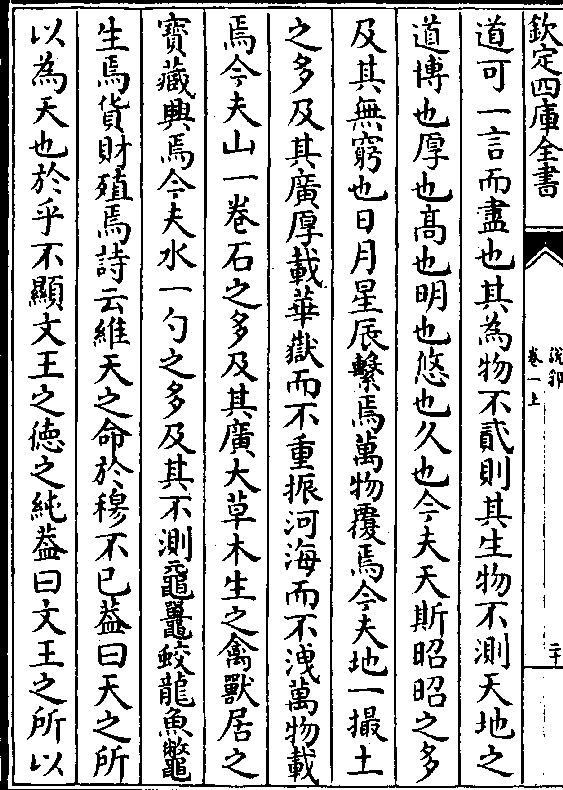 欽定四庫全書
說郛
卷一上
二十
道可一言而盡也其為物不貳則其生物不測天地之
道博也厚也髙也明也悠也久也今夫天斯昭昭之多
及其無窮也日月星辰繫焉萬物覆焉今夫地一撮土
之多及其廣厚載華嶽而不重振河海而不洩萬物載
焉今夫山一卷石之多及其廣大草木生之禽獸居之
寳藏興焉今夫水一勺之多及其不測黿鼉蛟龍魚鼈
生焉貨財殖焉詩云維天之命於穆不已葢曰天之所
以為天也於乎不顯文王之徳之純葢曰文王之所以